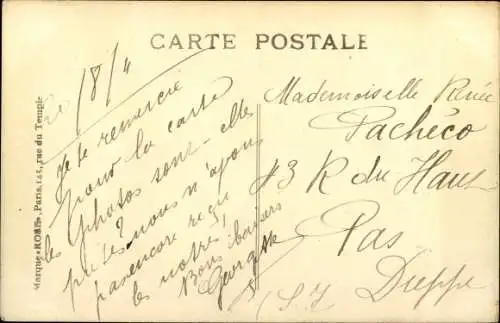 CARTE POSTALE
18/4
Je te remercie
pour la carte
les photos sont-elles
prêtes? nous n'avons
pas encore reçu
les nôtres,
Bons baisers
Georgette
Mademoiselle Renée
Pachéco
43 R du Haut
Pas
Dieppe
(S. I)
Marque «ROSE», Paris, 145, rue du Temple